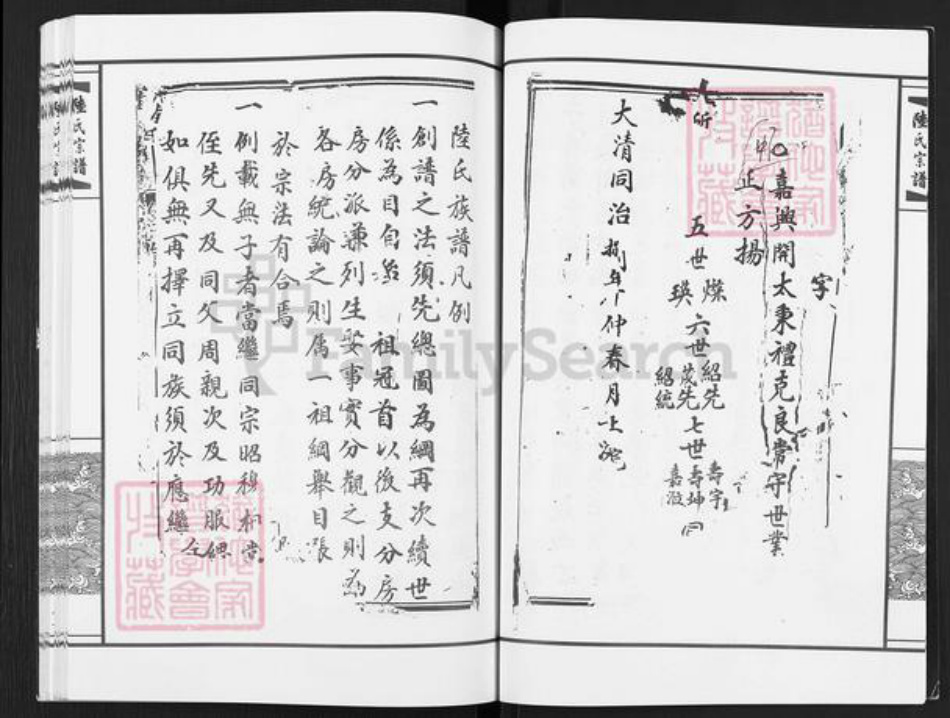 陸氏宗譜
字
嘉興開太秉禮克良常守世業
正方揚
五世 燦 瑛 六世 紹先 茂先 紹統 七世 壽宇 壽坤 嘉澂 同
大清同治捌年仲春月上浣
陸氏族譜凡例
一創譜之法須先總圖為綱再次續世
係為目自 祖冠首以後支分房
房分派兼列生娶事實分觀之則為
各房統論之則属一祖綱舉目張
於宗法有合焉
一例載無子者當繼同宗昭穆相當
侄先又及同父周親次及功服緦
如俱無再擇立同族須於應繼
陸氏宗譜
FamilySearch